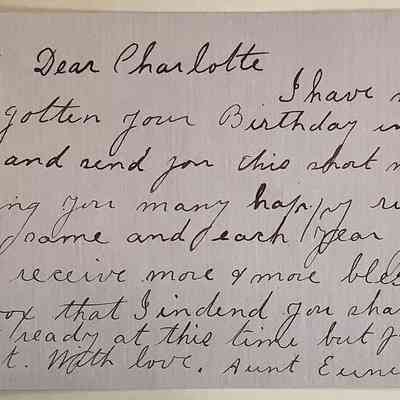 Dear Charlotte
I have n
gotten your Birthday in
and send you this short n
ing you many happy r
same and each year
receive more & more bles
ox that I indend you sha
ready at this time but f
t. With love. Aunt Euni